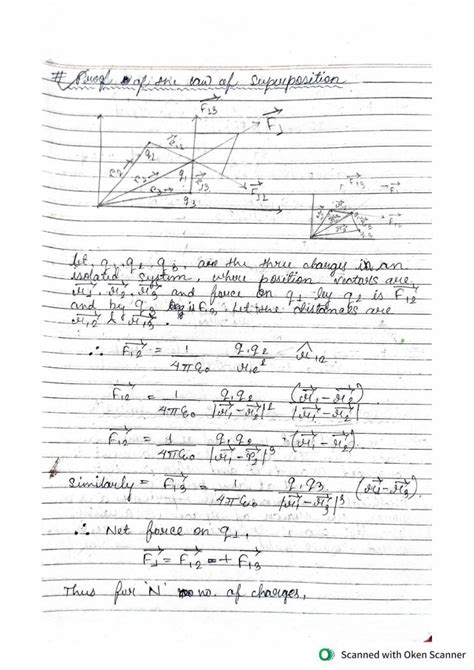 # Proof of the law of Superposition
F₁₃
F₁
q₂
r₁₂
F₁₂
q₁
r₁₃
r₂
r₃
q₃
Let, q₁, q₂, q₃, are the three charges in an
isolated system, whose position vectors are
r₁, r₂, r₃ and force on q₁ by q₂ is F₁₂
and by q₃ is F₁₃. Let the distances are
r₁₂ & r₁₃.
∴ F₁₂ = 1/4πε₀ q₁q₂/r₁₂² r̂₁₂
F₁₂ = 1/4πε₀ q₁q₂/|r₁-r₂|² (r₁-r₂)/|r₁-r₂|
F₁₂ = 1/4πε₀ q₁q₂/|r₁-r₂|³ (r₁-r₂).
Similarly = F₁₃ = 1/4πε₀ q₁q₃/|r₁-r₃|³ (r₁-r₃).
∴ Net force on q₁,
F₁ = F₁₂ + F₁₃
Thus for 'N' no. of charges,
Scanned with Oken Scanner